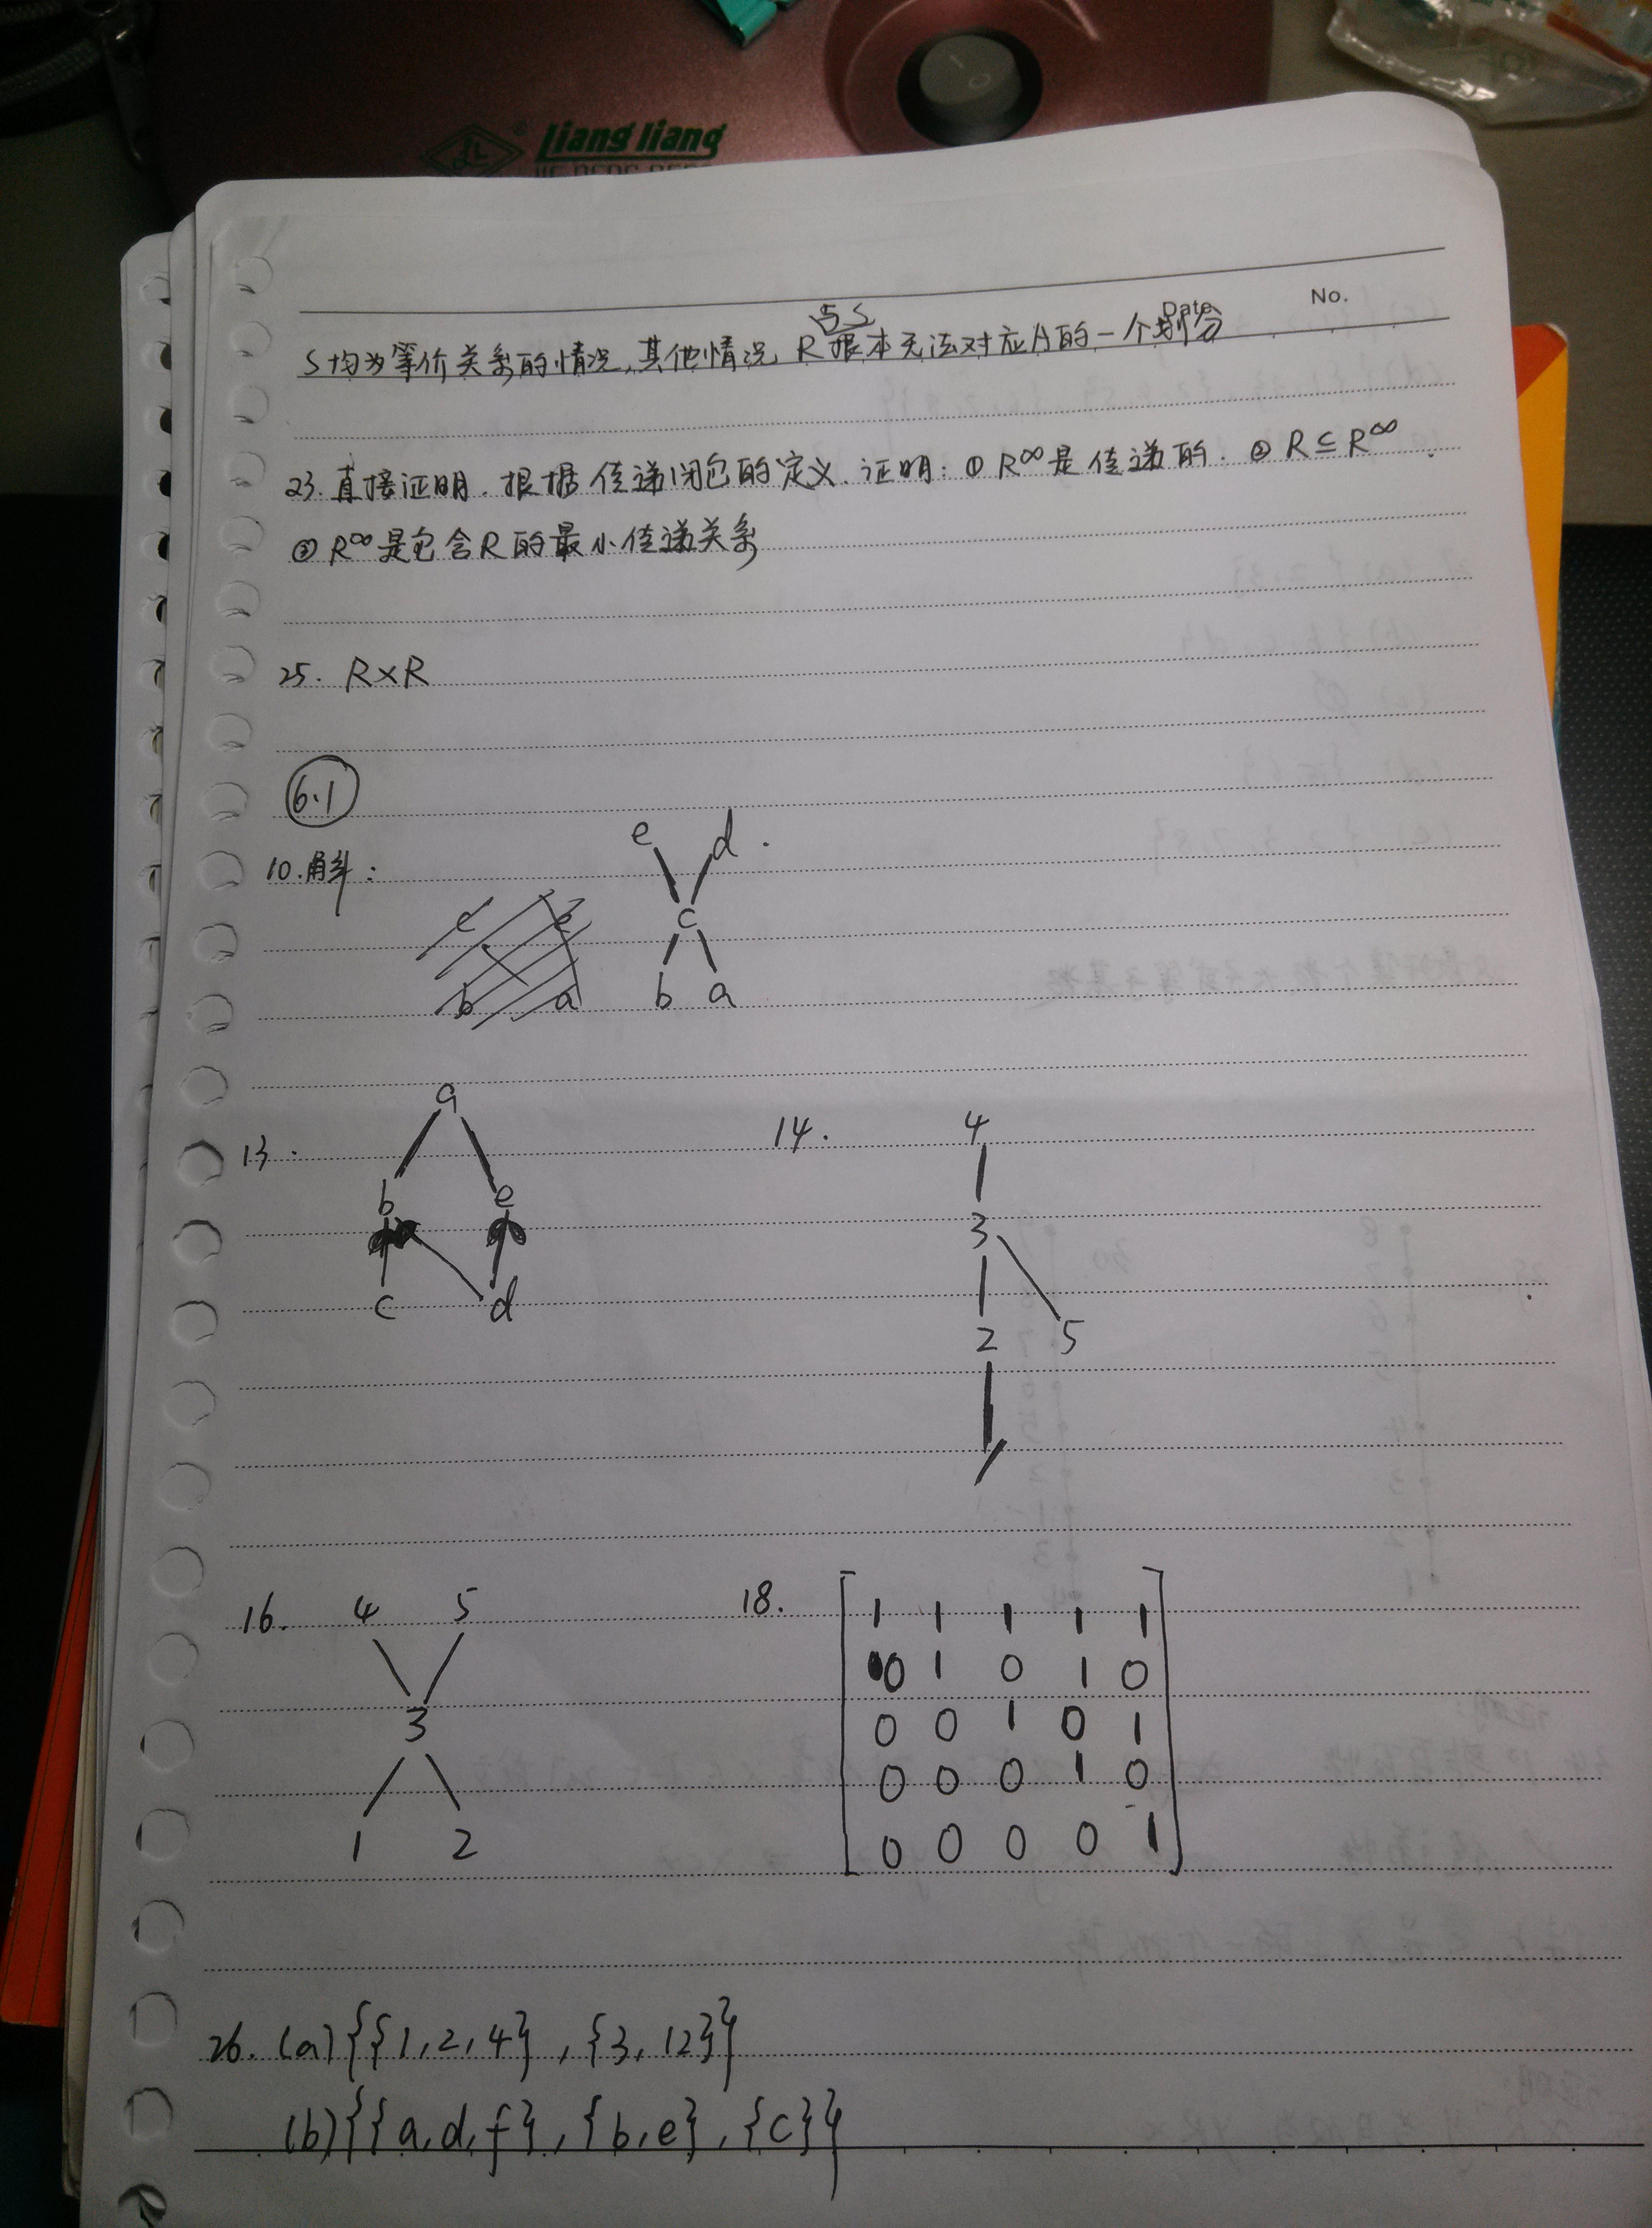 Liang liang
No.
Date
与S
S均为等价关系的情况,其他情况 R根本无法对应A的一个划分
23.直接证明.根据传递闭包的定义.证明:① R∞是传递的.② R⊆R∞
③ R∞是包含R的最小传递关系
25. R×R
6.1
10.解:
e d.
c
b a
c e
b a
13.
a
b e
c d
14.
4
3
2 5
16.
4 5
3
1 2
18.
1 1 1 1 1
0 1 0 1 0
0 0 1 0 1
0 0 0 1 0
0 0 0 0 1
26. (a){{1,2,4},{3,12}}
(b){{a,d,f},{b,e},{c}}